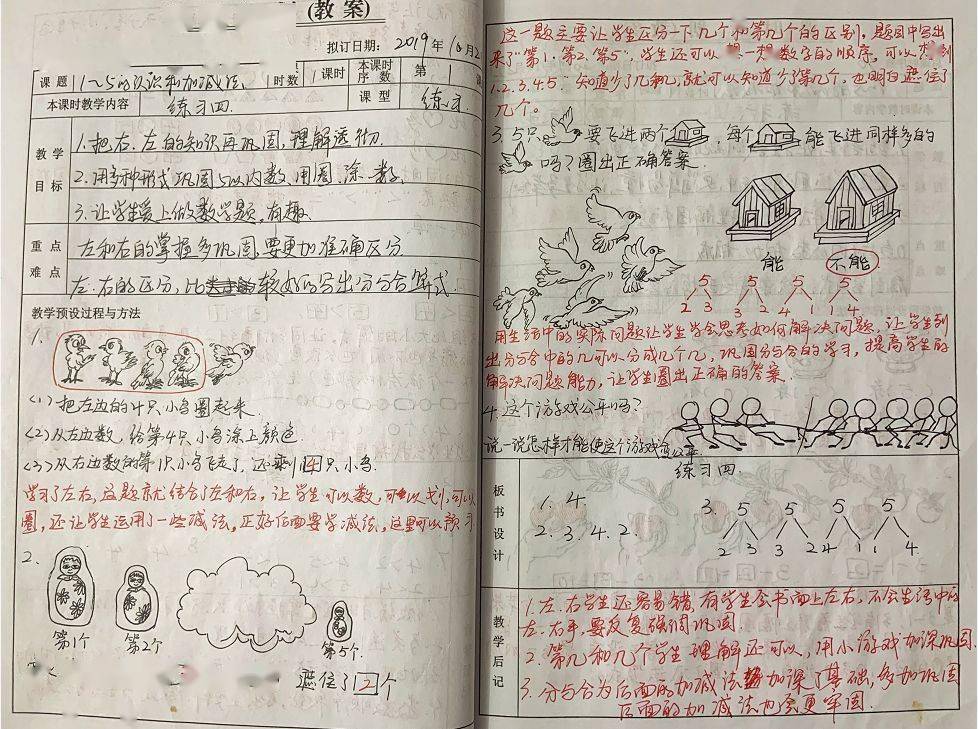 (教 案)
拟订日期: 2019年10月2
课 题 1~5的认识和加减法 时数 1课时 本课时序数 第 1
本课时教学内容 练习四. 课 型 练习.
教 学 目 标
1.把右、左的知识再巩固,理解透彻.
2.用多种形式巩固5以内数,用圈、涂、数.
3.让学生爱上做数学题,有趣.
重 点 难 点
左和右的掌握多巩固,要更加准确区分
左、右的区分,比较好的写出分与合算式.
教学预设过程与方法
1.
(1)把左边的4只小鸟圈起来.
(2)从左边数,给第4只小鸟涂上颜色
(3)从右边数的第1只小鸟飞走了,还剩4只小鸟.
学习了左右,这题就结合了左和右,让学生可以数,可以划,可以
圈,还让学生运用了一些减法,正好后面要学减法,这里可以预习
2.
第1个 第2个 第5个.
遮住了2个
这一题主要让学生区分一下几个和第几个的区别,题目中写出
来了"第1、第2、第5",学生还可以 数字的顺序,可以
1.2.3.4.5.知道少了几和几,就可以知道少了第几个,也明白遮住了
几个。
3.5只 要飞进两个 ,每个 能飞进同样多的
吗?圈出正确答案.
能 不能
5 5 5 5
2 3 3 2 4 1 1 4
用生活中的实际问题让学生学会思考如何解决问题,让学生列
出分与合中的几可以分成几个几,巩固分与合的学习,提高学生的
解决问题能力,让学生圈出正确的答案.
4.这个游戏公平吗?
说一说怎样才能使这个游戏变公平.
板 书 设 计
练习四
1. 4.
2. 3. 4. 2.
3. 5 5 5 5
2 3 3 2 4 1 1 4.
教 学 后 记
1.左、右学生还容易错,有学生会书面上左右,不会生活中的
左、右手,要反复强调巩固.
2.第几和几个学生理解还可以,用小游戏加深巩固.
3.分与合为后面的加减法加深了基础,多加巩固
后面的加减法也会更牢固.